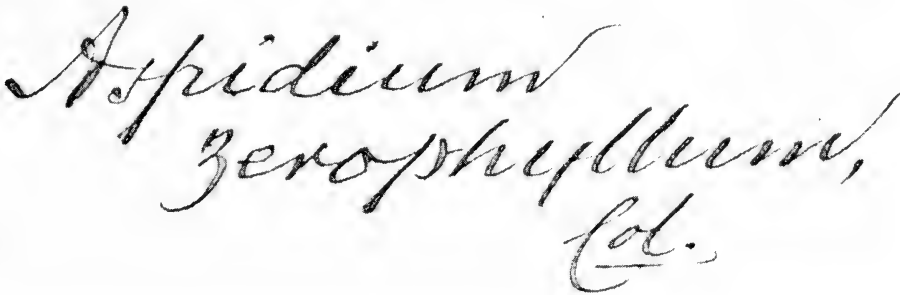 Aspidium
zerophyllum,
Col.